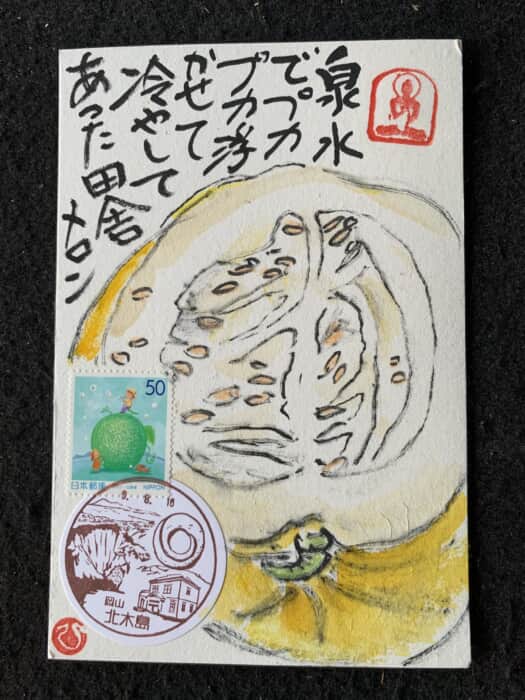 泉水
でプカ
プカ浮
かせて
冷やして
あった田舎
メロン
50
日本郵便
NIPPON
9.8.18
岡山
北木島